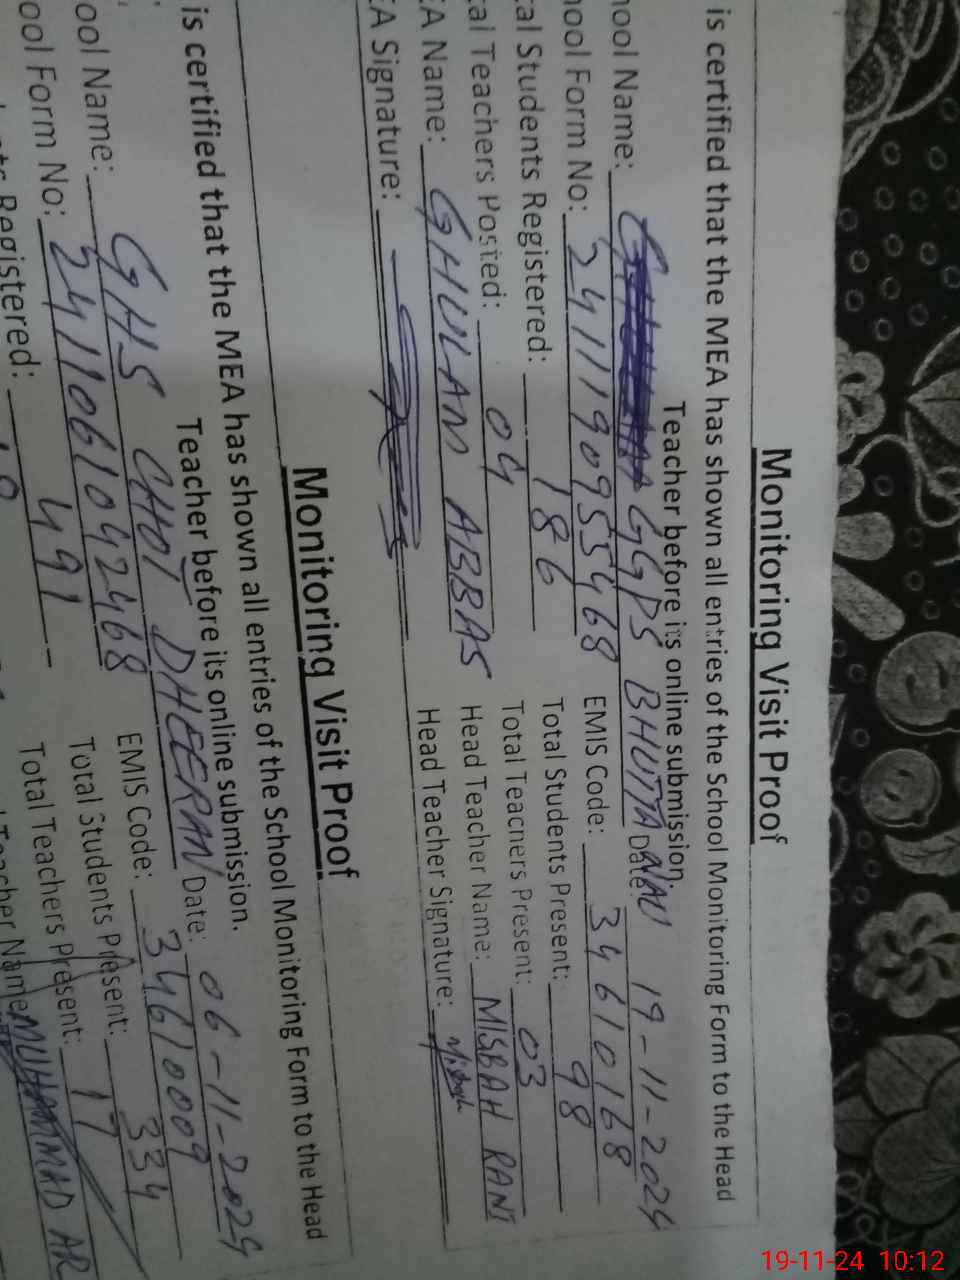 Monitoring Visit Proof
is certified that the MEA has shown all entries of the School Monitoring Form to the Head
Teacher before its online submission.
ool Name: GGPS BHUTTA NAU Date: 19-11-2024
ool Form No: 24111909554 68 EMIS Code: 34610168
tal Students Registered: 186 Total Students Present: 98
tal Teachers Posted: 04 Total Teachers Present: 03
EA Name: GHULAM ABBAS Head Teacher Name: MISBAH RANI
EA Signature: Head Teacher Signature: Misbah
Monitoring Visit Proof
is certified that the MEA has shown all entries of the School Monitoring Form to the Head
Teacher before its online submission.
ool Name: GHS CHOI DHEERAN Date: 06-11-2024
ool Form No: 2411061042468 EMIS Code: 34610009
Registered: 491 Total Students Present: 334
Total Teachers Present: 17
Teacher Name MUHAMMAD AR
19-11-24 10:12